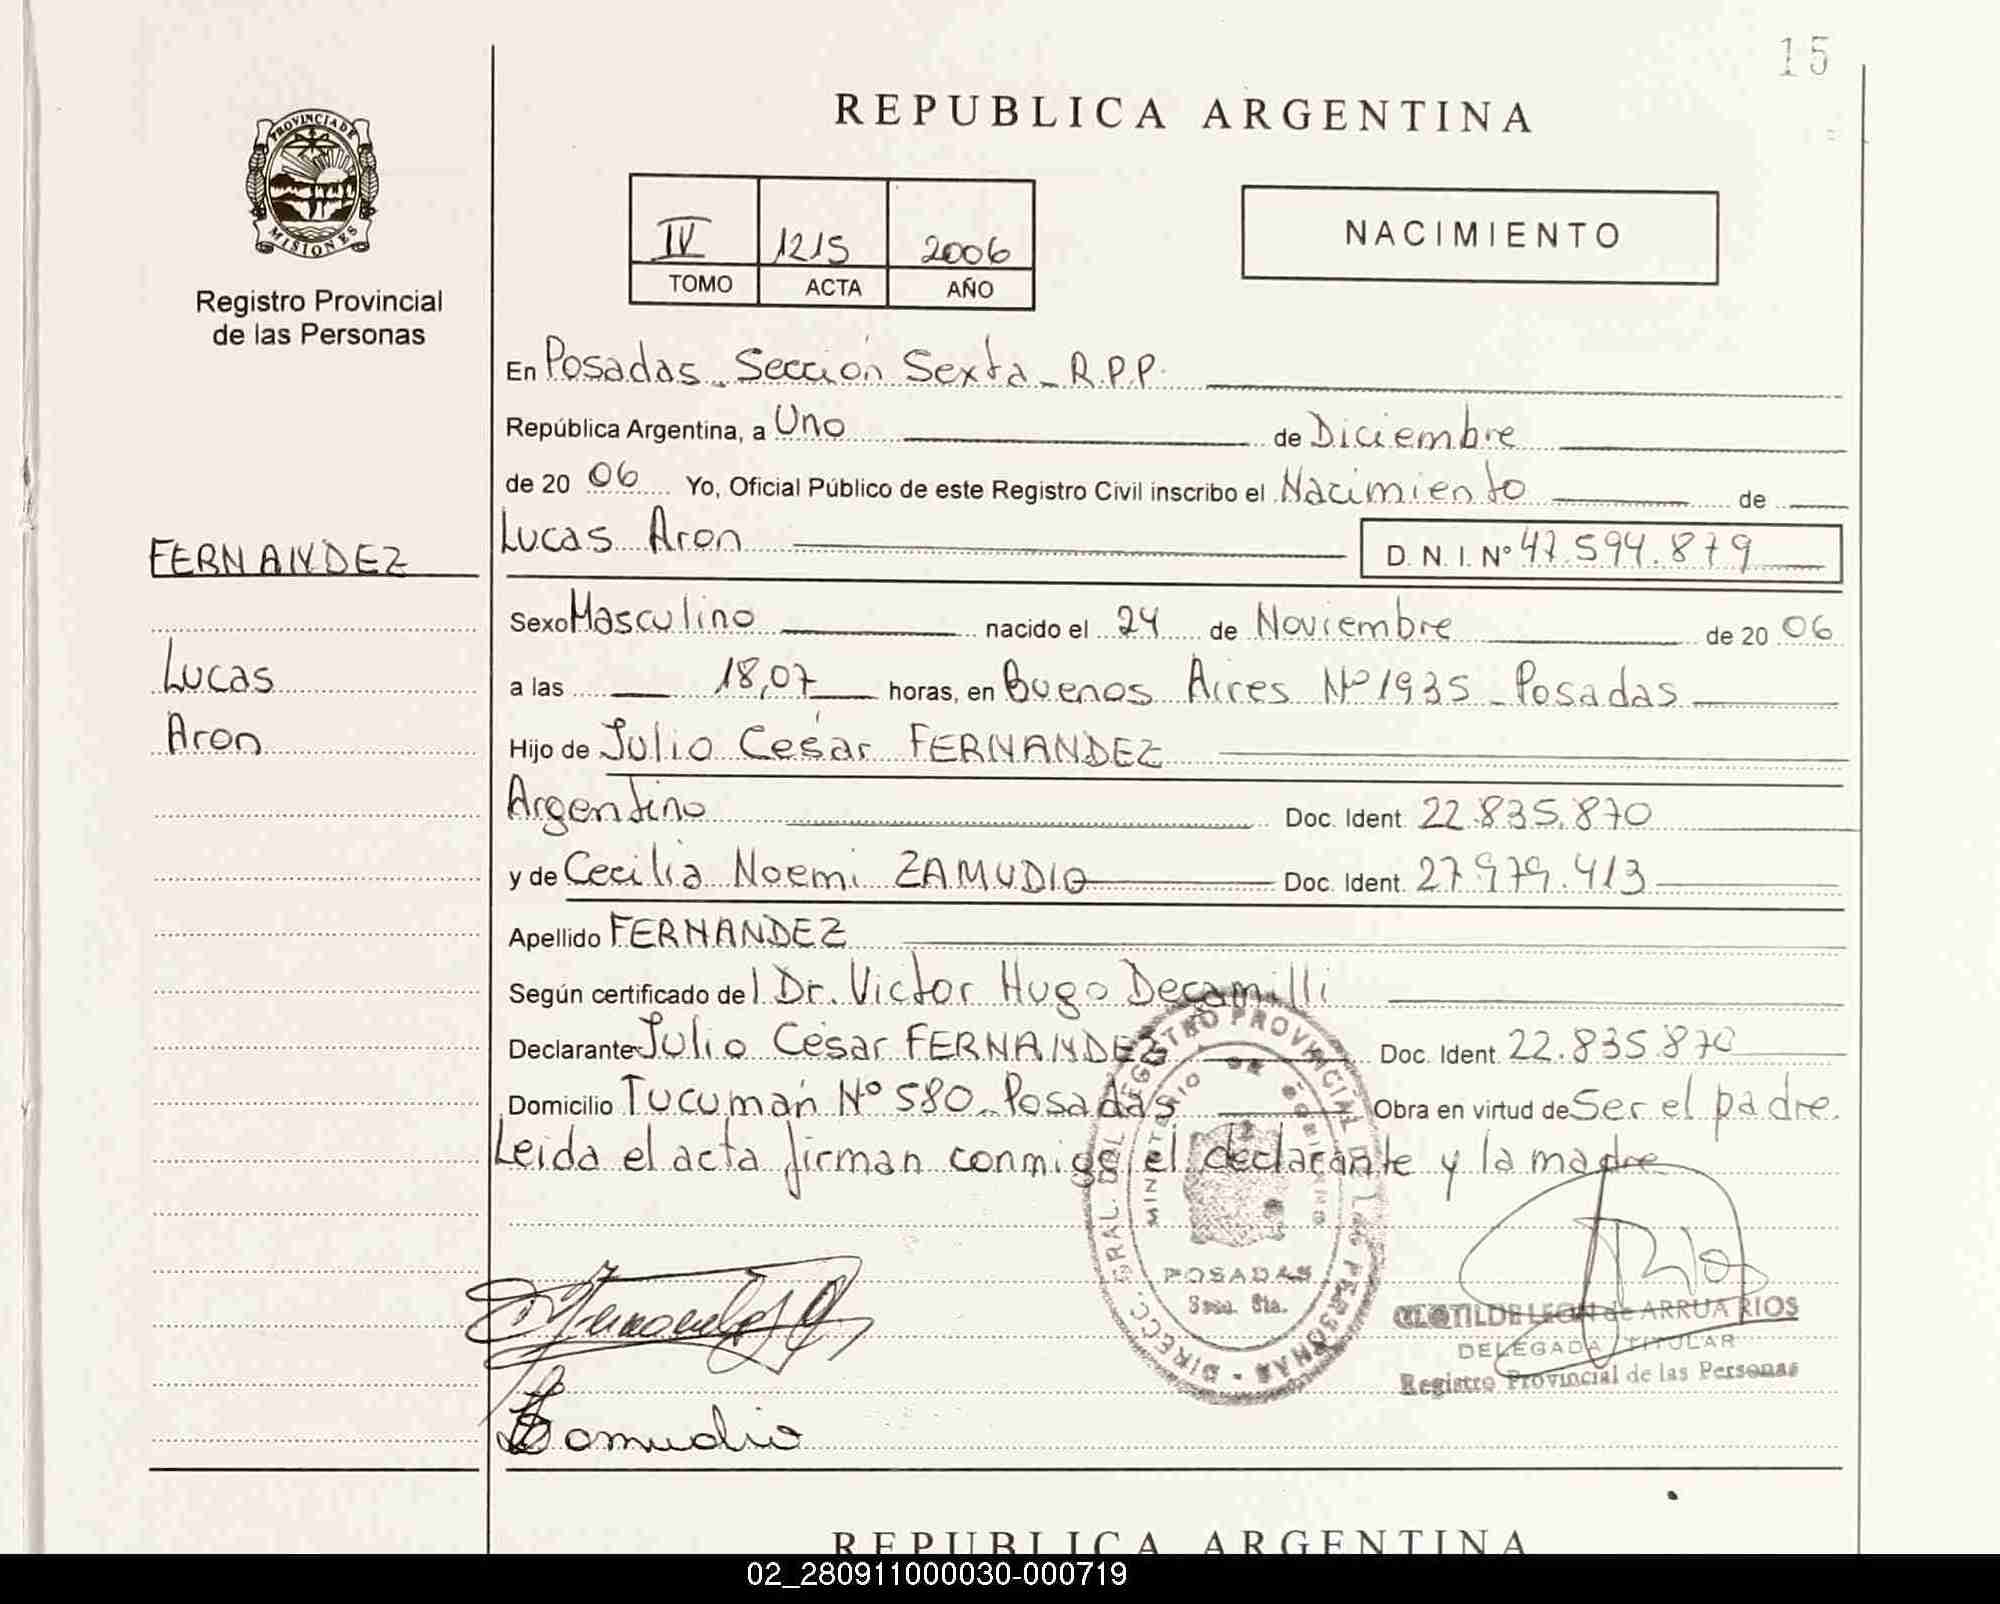 15
PROVINCIA DE
MISIONES
Registro Provincial
de las Personas
REPUBLICA ARGENTINA
IV 1215 2006
TOMO ACTA AÑO
NACIMIENTO
En Posadas - Sección Sexta - R.P.P.
República Argentina, a Uno de Diciembre
de 20 06 Yo, Oficial Público de este Registro Civil inscribo el Nacimiento de
FERNANDEZ
Lucas Aron D. N. I. Nº 47.594.879
Sexo Masculino nacido el 24 de Noviembre de 20 06
Lucas
a las 18,07 horas, en Buenos Aires Nº 1935 - Posadas
Aron
Hijo de Julio César FERNANDEZ
Argentino Doc. Ident. 22.835.870
y de Cecilia Noemi ZAMUDIO Doc. Ident. 27.979.413
Apellido FERNANDEZ
Según certificado del Dr. Victor Hugo Decamilli
Declarante Julio César FERNANDEZ Doc. Ident. 22.835.870
Domicilio Tucumán Nº 580 - Posadas Obra en virtud de Ser el padre.
Leida el acta firman conmigo el declarante y la madre
DIRECC. GRAL. DEL REGISTRO PROVINCIAL DE LAS PERSONAS -
MINISTERIO DE GOBIERNO
POSADAS
Secc. 6ta.
CLOTILDE LEON de ARRUA RIOS
DELEGADA TITULAR
Registro Provincial de las Personas
Zamudio
REPUBLICA ARGENTINA
02_280911000030-000719